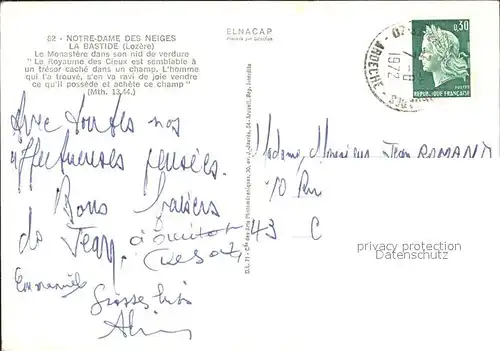 82 - NOTRE-DAME DES NEIGES
LA BASTIDE (Lozère)
Le Monastère dans son nid de verdure
" Le Royaume des Cieux est semblable à
un trésor caché dans un champ. L'homme
qui l'a trouvé, s'en va ravi de joie vendre
ce qu'il possède et achète ce champ "
(Mth. 13.44.)
ELNACAP
0,30
POSTES
REPUBLIQUE FRANÇAISE
1972
ARDECHE
Avec toutes nos
affectueuses pensées.
Bons baisers
de Jean. à bientôt
Emmanuel
Grosses bises
Madame, Monsieur Jean ROMAND
10 Ru
43 C
privacy protection
Datenschutz